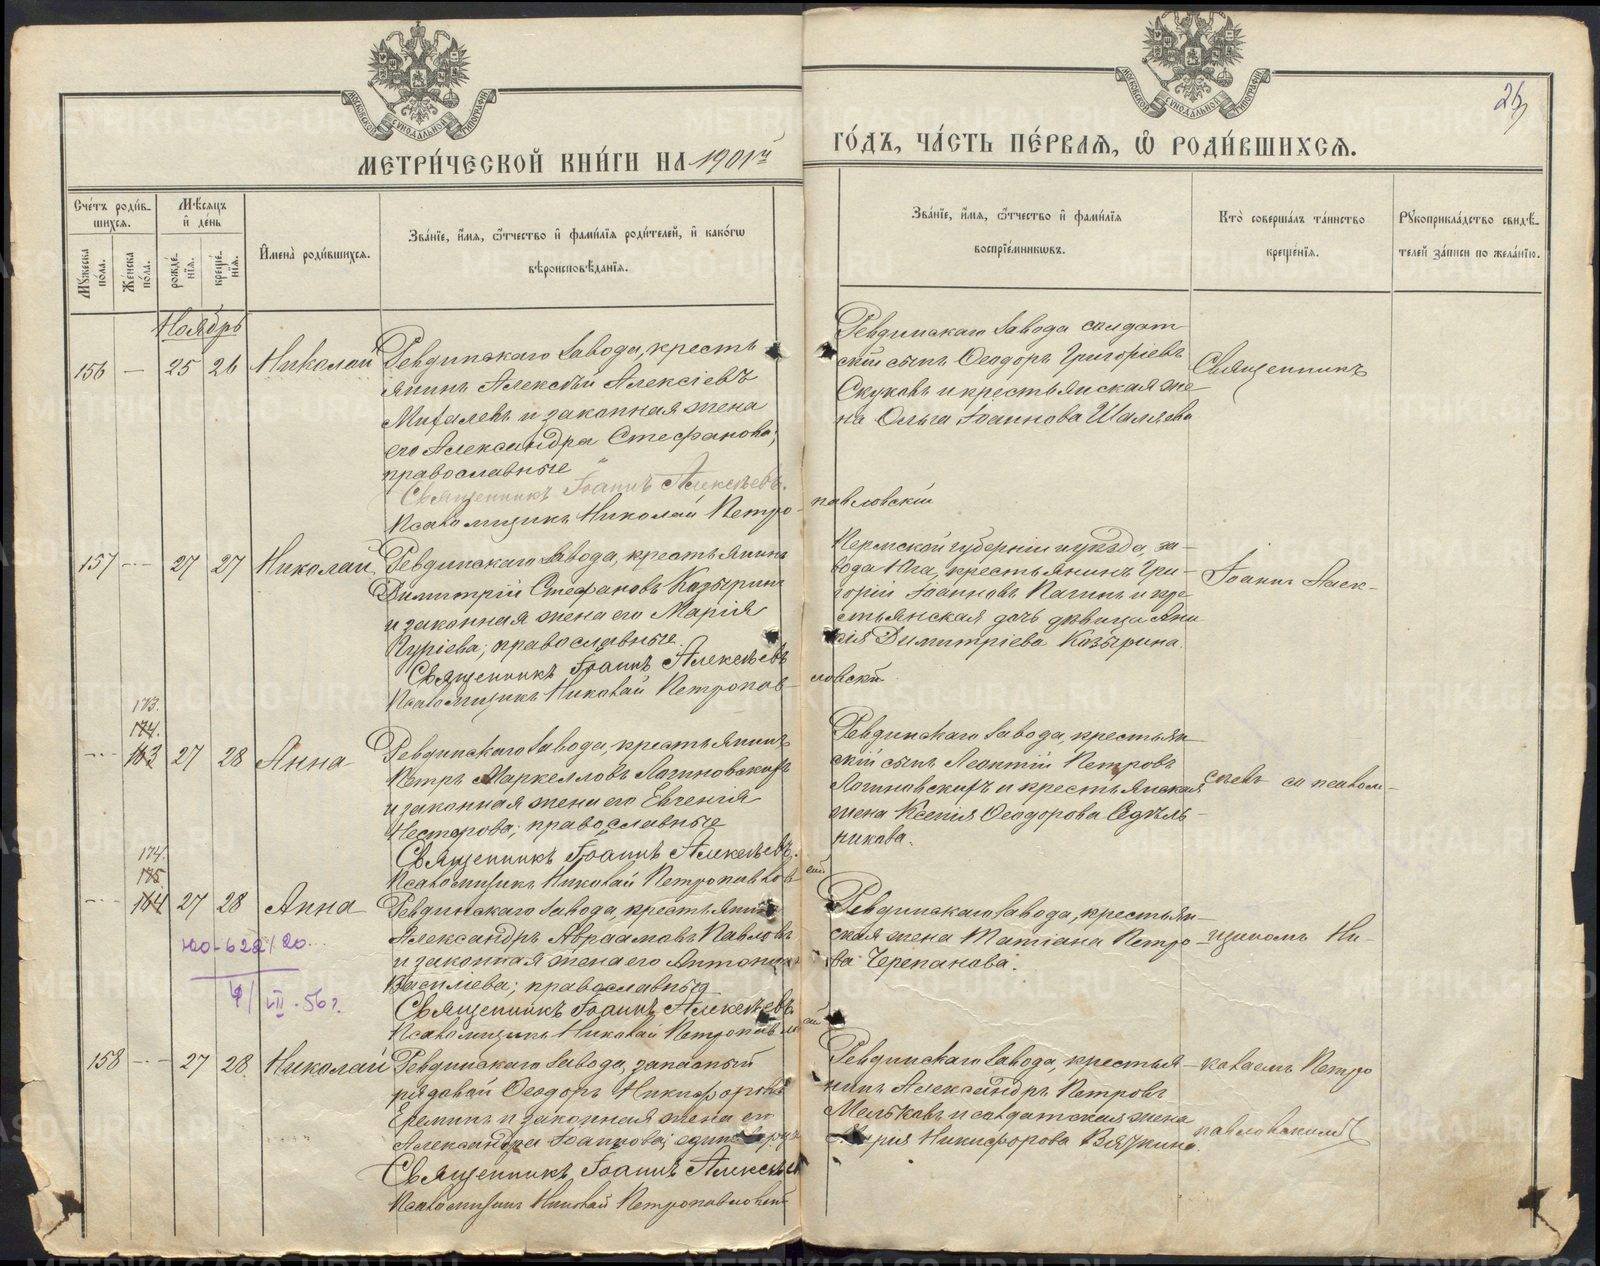 МОСКОВСКОЙ СѴНОДАЛЬНОЙ ТИПОГРАФІИ
МОСКОВСКОЙ СѴНОДАЛЬНОЙ ТИПОГРАФІИ
МЕТРИ́ЧЕСКОЙ КНИ́ГИ НА 1901й
ГО́ДЪ, ЧА́СТЬ ПЕ́РВАѦ, Ѽ РОДИ́ВШИХСѦ.
Сче́тъ роди́в-
шихсѧ.
Мѣ́сѧцъ
и҆ де́нь
Мꙋ́жеска
по́ла.
Же́нска
по́ла.
рожде́-
нїѧ.
креще́-
нїѧ.
И҆мена̀ роди́вшихсѧ.
Зва́нїе, и҆́мѧ, ѻ҆́тчество и҆ фами́лїѧ роди́телей, и҆ како́гѡ
вѣроисповѣ́данїѧ.
Зва́нїе, и҆́мѧ, ѻ҆́тчество и҆ фами́лїѧ
воспрїе́мникѡвъ.
Кто̀ соверша́лъ та́инство
креще́нїѧ.
Рꙋкоприкла́дство свидѣ́-
телей за́писи по жела́нїю.
Ноябрь
156 — 25 26 Николай
Ревдинскаго завода, кресть
янинъ Алексѣй Алексіевъ
Михалевъ и законная жена
его Александра Стефанова;
православные
Священникъ Іоаннъ Алексѣевъ.
Псаломщикъ Николай Петро-
павловскій
Ревдинскаго завода солдат
скій сынъ Ѳеодоръ Григоріевъ
Скуковъ и крестьянская же
на Ольга Іоаннова Шаляева
Священникъ
157 — 27 27 Николай
Ревдинскаго завода, крестьянинъ
Димитрій Стефановъ Козыринъ
и законная жена его Марія
Гуріева; православные
Священникъ Іоаннъ Алексѣевъ
Псаломщикъ Николай Петропав-
ловскій
Пермской губерніи и уѣзда, за-
вода Юга, крестьянинъ Гри-
горій Іоанновъ Пагинъ и кре
стьянская дочь дѣвица Ани
сія Димитріева Козырина.
Іоаннъ Алек-
173.
174.
— 163 27 28 Анна
Ревдинскаго завода, крестьянинъ
Петръ Маркелловъ Логиновскихъ
и законная жена его Евгенія
Нестерова; православные
Священникъ Іоаннъ Алексѣевъ.
Псаломщикъ Николай Петропавлов
скій
Ревдинскаго завода, крестьян-
скій сынъ Леонтій Петровъ
Логиновскихъ и крестьянская
жена Ксенія Ѳеодорова Седель-
никова.
сѣевъ съ псалом-
174.
175
— 164 27 28 Анна
Ревдинскаго завода, крестьянинъ
Александръ Авраамовъ Павловъ
и законная жена его Антонина
Василіева; православные
Священникъ Іоаннъ Алексѣевъ.
Псаломщикъ Николай Петропавлов
скій
Ревдинскаго завода, крестьян-
ская жена Татіана Петро
ва Черепанова.
щикомъ Ни-
VII.56 г.
158 — 27 28 Николай
Ревдинскаго завода, запасный
рядовой Ѳеодоръ Никифоровъ
Ереминъ и законная жена его
Александра Іоаннова; единовѣрцы
Священникъ Іоаннъ Алексѣевъ
Псаломщикъ Николай Петропавловскій
Ревдинскаго завода, крестья-
нинъ Александръ Петровъ
Мальковъ и солдатская жена
Марія Никифорова Вяткина.
колаемъ Петро
павловскимъ